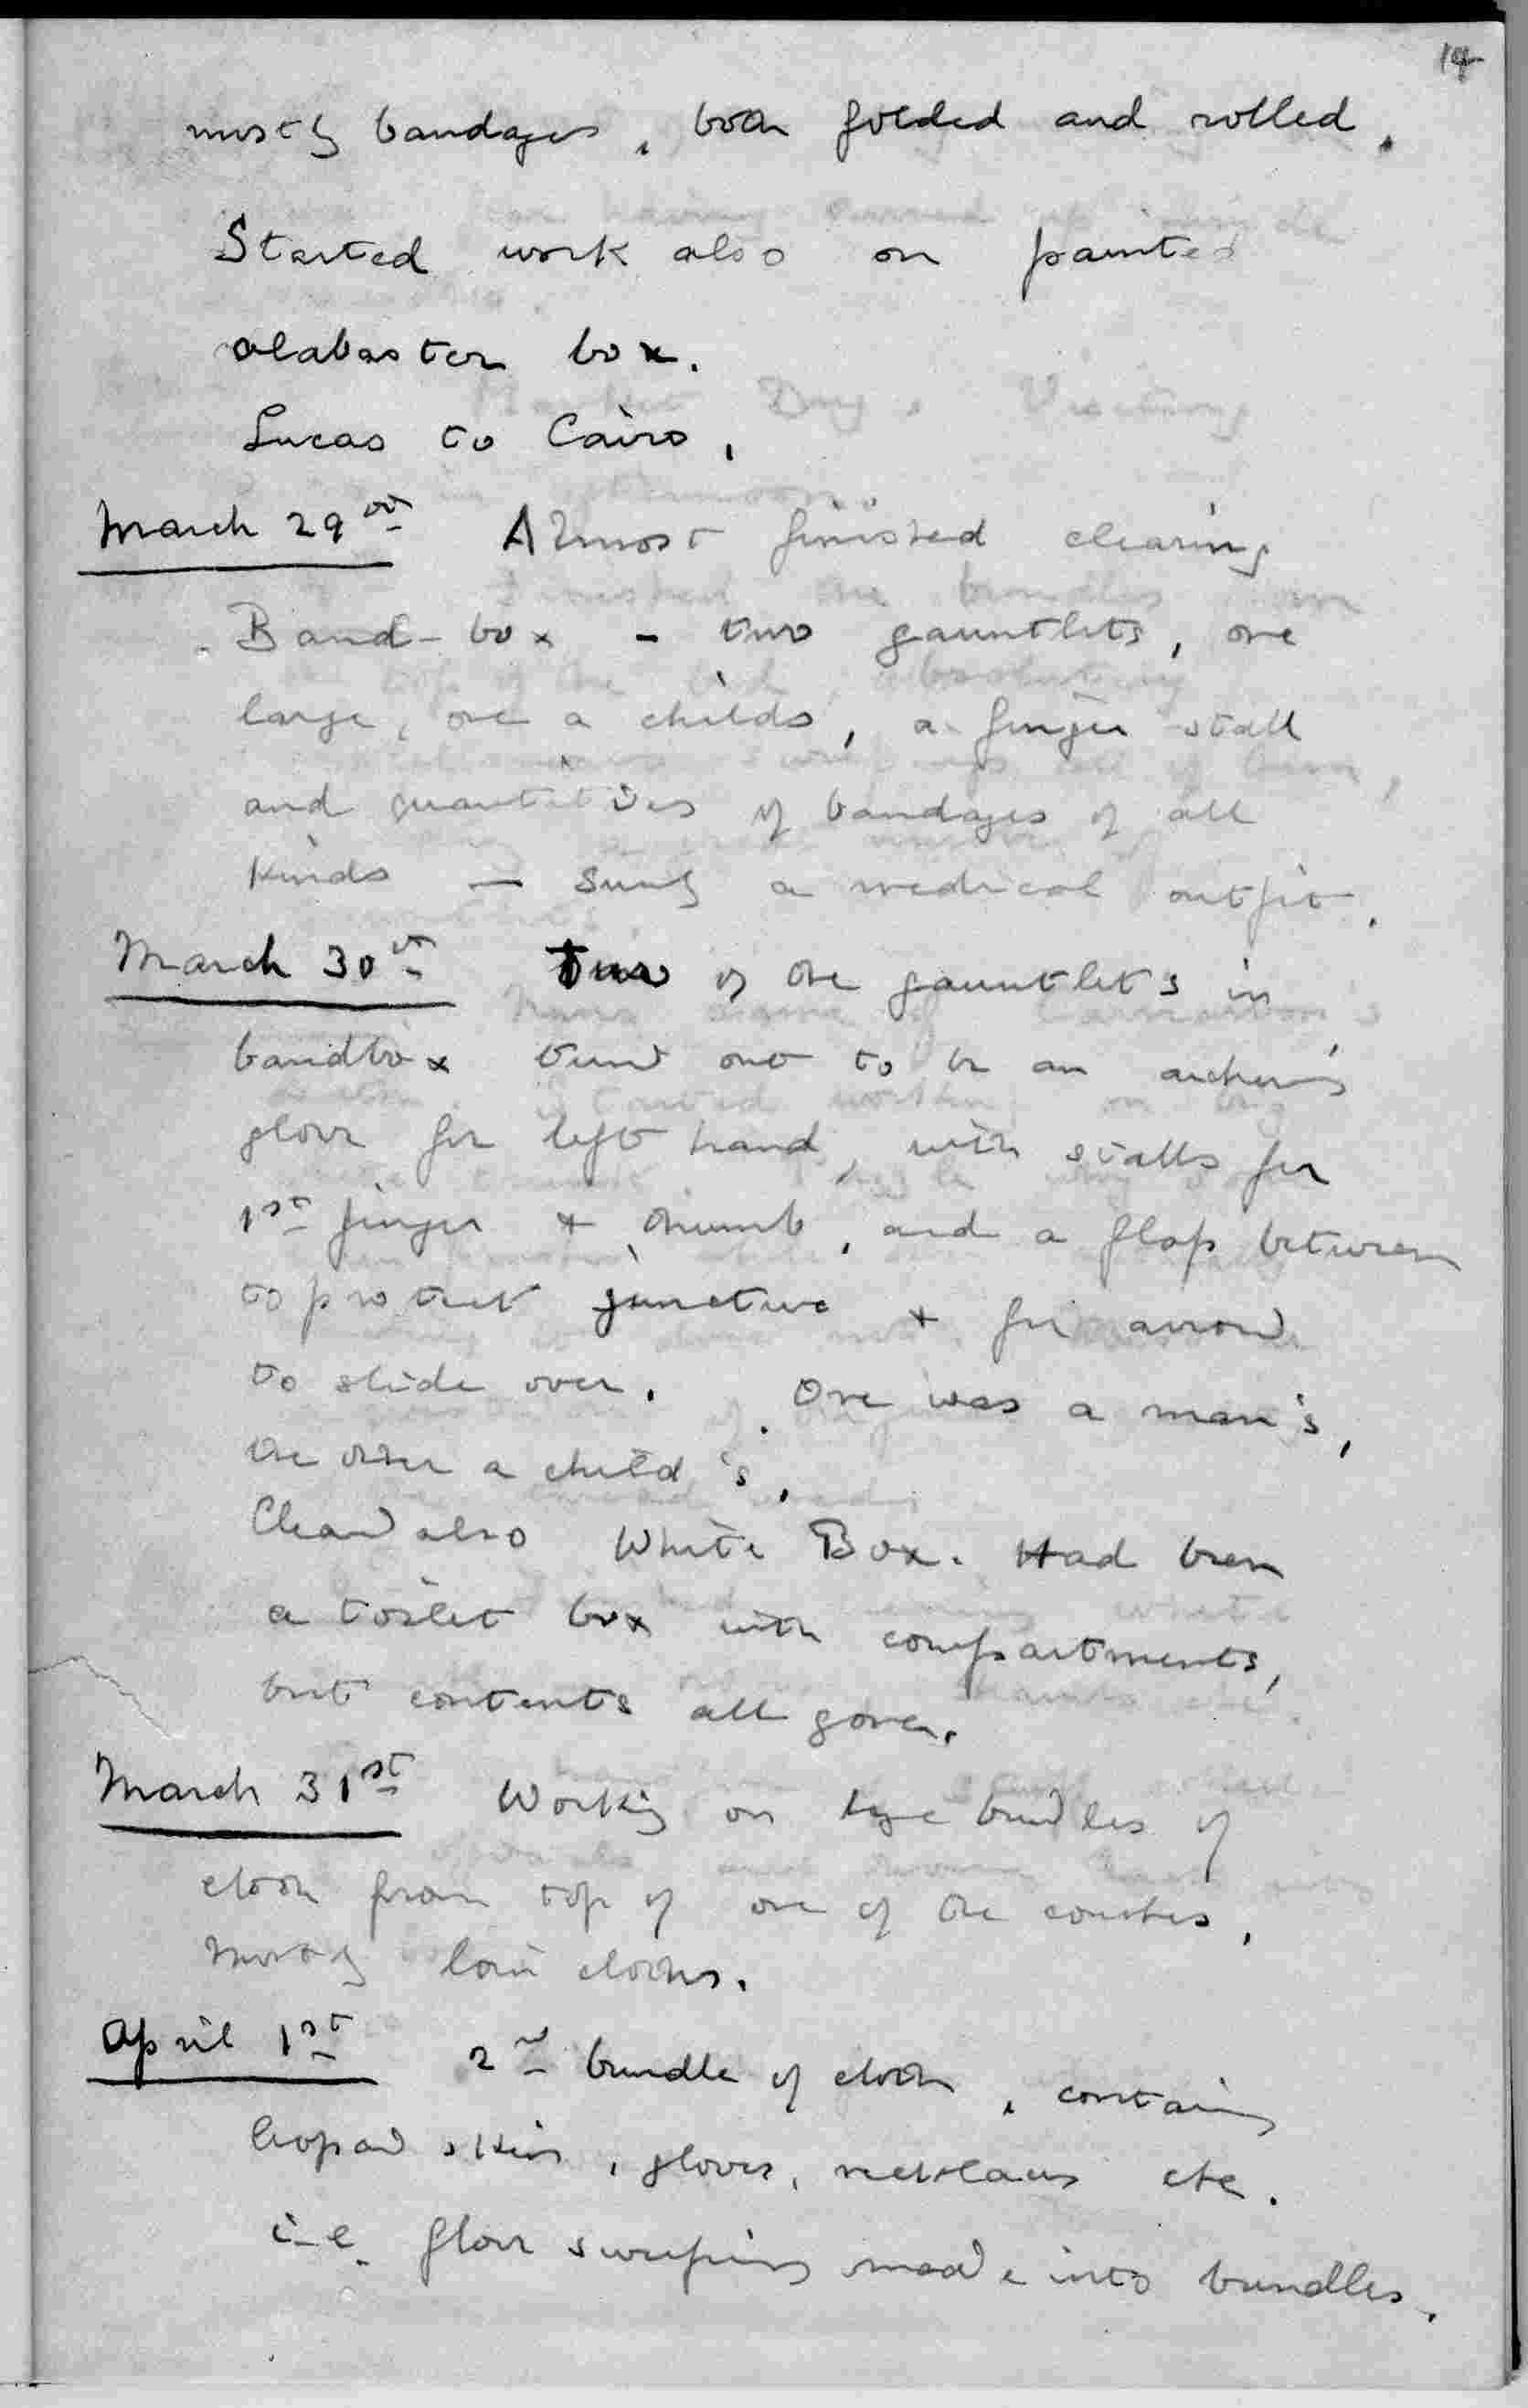 14
mostly bandages, both folded and rolled.
Started work also on painted
alabaster box.
Lucas to Cairo.
March 29th Almost finished clearing
Band-box - two gauntlets, one
large, one a childs, a finger stall
and quantities of bandages of all
kinds - surely a medical outfit.
March 30th Two of the gauntlets in
bandbox turned out to be an archer's
glove for left hand, with stalls for
1st finger + thumb, and a flap between
to protect juncture + for arrow
to slide over. One was a man's,
the other a child's.
Cleared also White Box. Had been
a toilet box with compartments,
but contents all gone.
March 31st Working on large bundles of
cloth from top of one of the couches,
Mostly loin cloths.
April 1st 2nd bundle of cloth, containing
leopard skin, gloves, necklaces etc.
i-e. floor sweepings made into bundles.